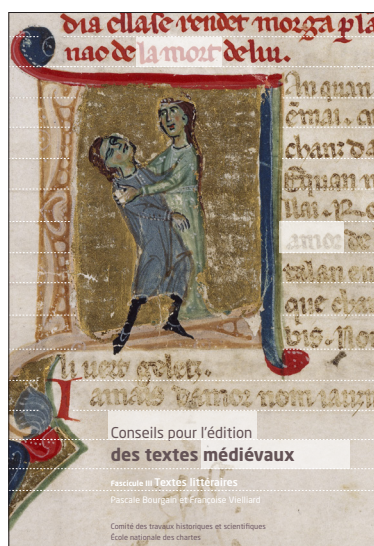 dia ellase rendet morga pla
nao de la mort de lui.
An quan
chanz da
amor de
que chan
amais damor nom iauri
Conseils pour l'édition
des textes médiévaux
Fascicule III Textes littéraires
Pascale Bourgain et Françoise Vielliard
Comité des travaux historiques et scientifiques
École nationale des chartes